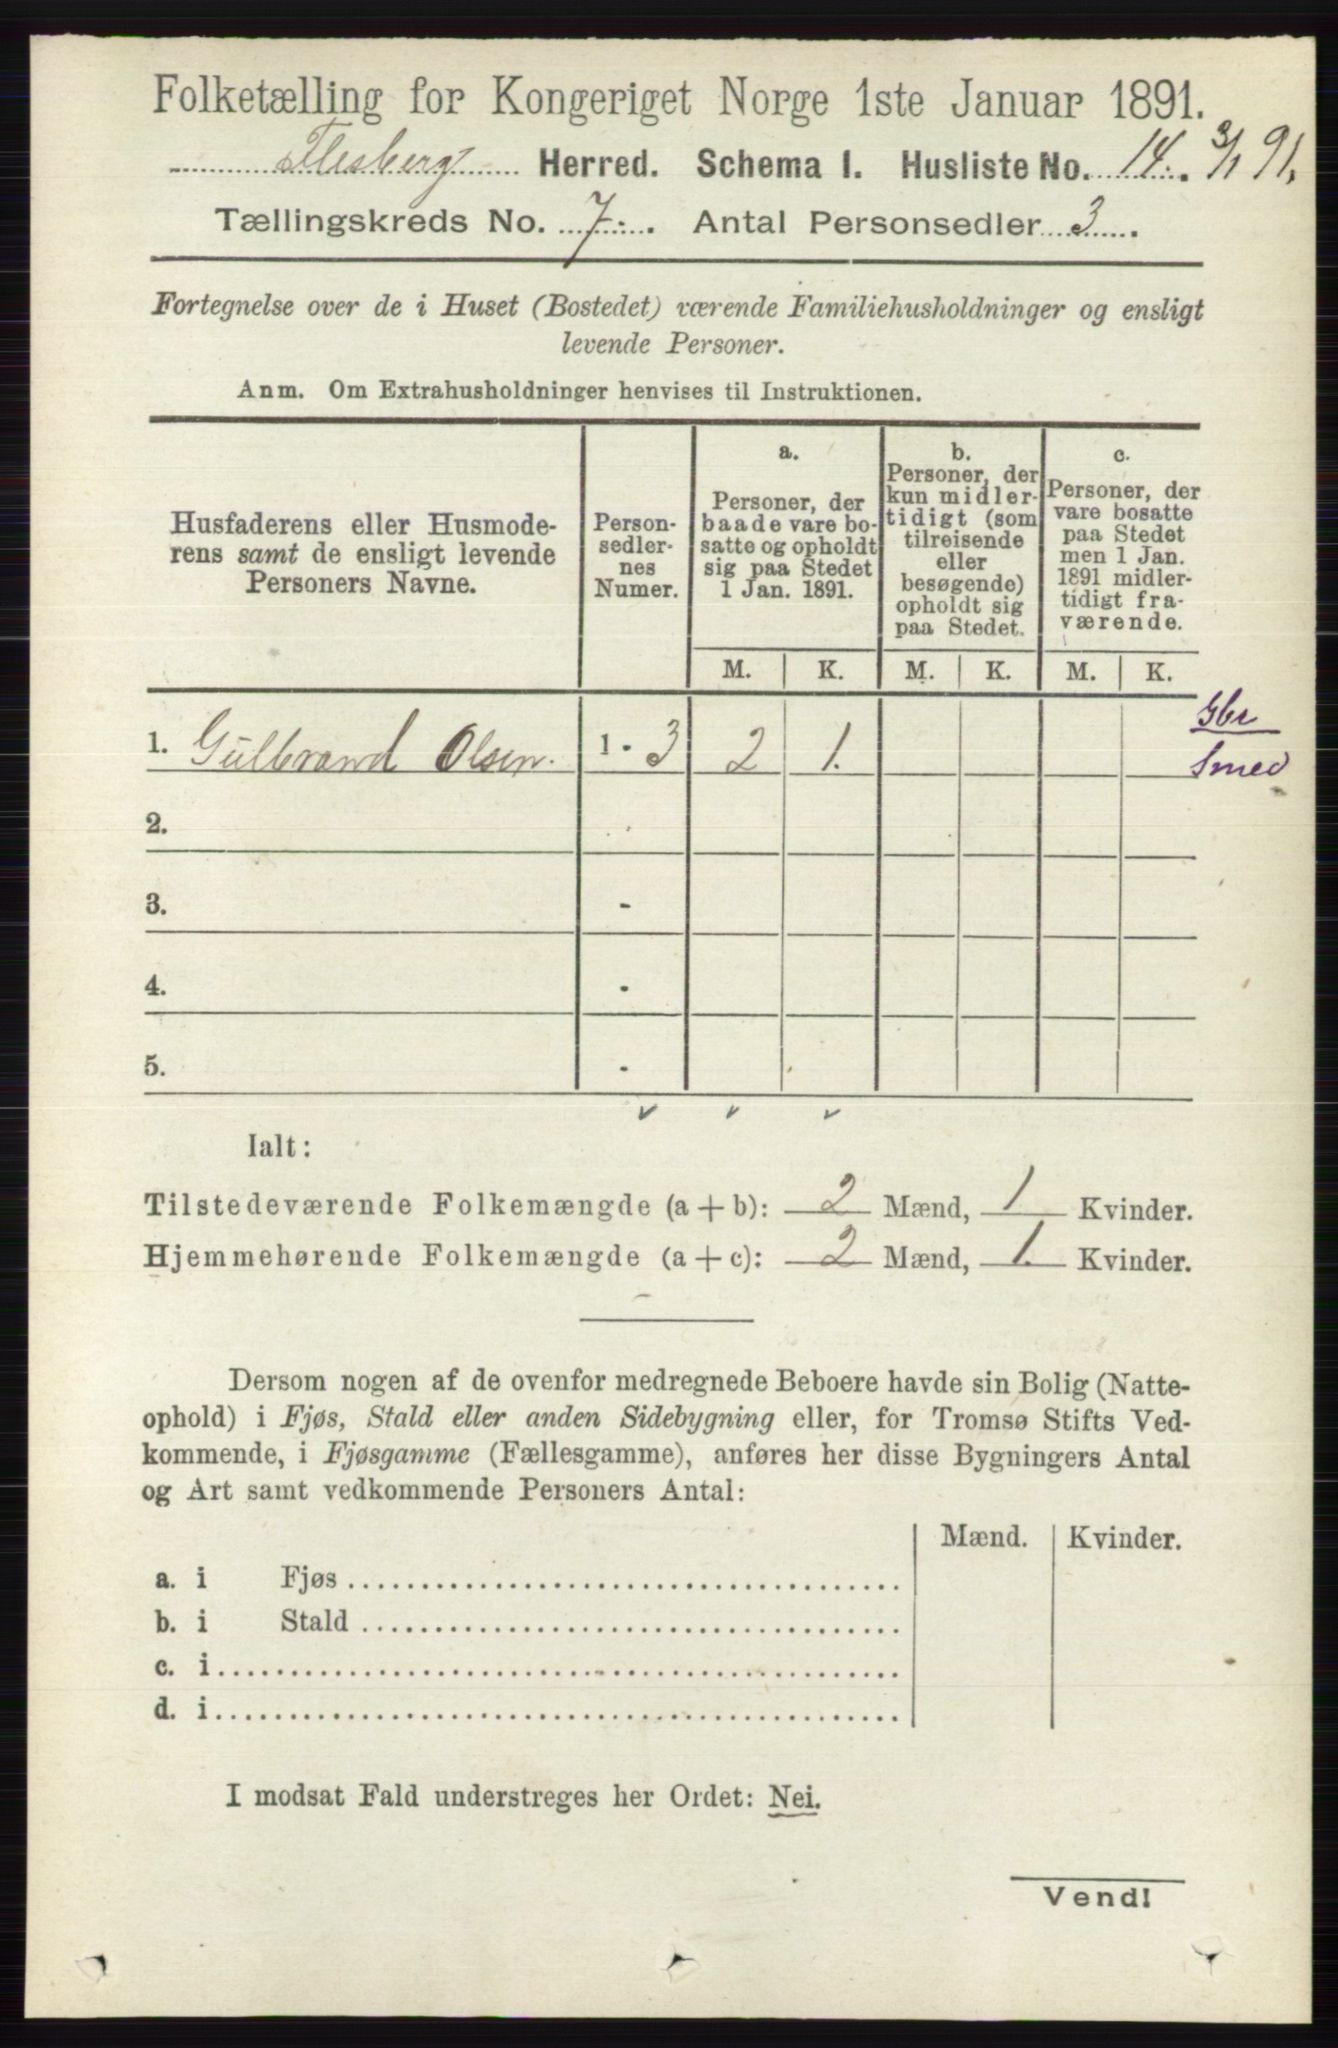 Folketælling for Kongeriget Norge 1ste Januar 1891.
Flesberg Herred. Schema I. Husliste No. 14. 3/1 91.
Tællingskreds No. 7. Antal Personsedler 3.
Fortegnelse over de i Huset (Bostedet) værende Familiehusholdninger og ensligt
levende Personer.
Anm. Om Extrahusholdninger henvises til Instruktionen.
Husfaderens eller Husmode-
rens samt de ensligt levende
Personers Navne.
Person-
sedler-
nes
Numer.
a.
Personer, der
baade vare bo-
satte og opholdt
sig paa Stedet
1 Jan. 1891.
b.
Personer, der
kun midler-
tidigt (som
tilreisende
eller
besøgende)
opholdt sig
paa Stedet.
c.
Personer, der
vare bosatte
paa Stedet
men 1 Jan.
1891 midler-
tidigt fra-
værende.
M. K. M. K. M. K.
1. Gulbrand Olsen. 1 - 3 2 1. Gbr
Smed
2.
3. -
4. -
5. -
Ialt:
Tilstedeværende Folkemængde (a + b): 2 Mænd, 1 Kvinder.
Hjemmehørende Folkemængde (a + c): 2 Mænd, 1. Kvinder.
Dersom nogen af de ovenfor medregnede Beboere havde sin Bolig (Natte-
ophold) i Fjøs, Stald eller anden Sidebygning eller, for Tromsø Stifts Ved-
kommende, i Fjøsgamme (Fællesgamme), anføres her disse Bygningers Antal
og Art samt vedkommende Personers Antal:
Mænd. Kvinder.
a. i Fjøs
b. i Stald
c. i
d. i
I modsat Fald understreges her Ordet: Nei.
Vend!